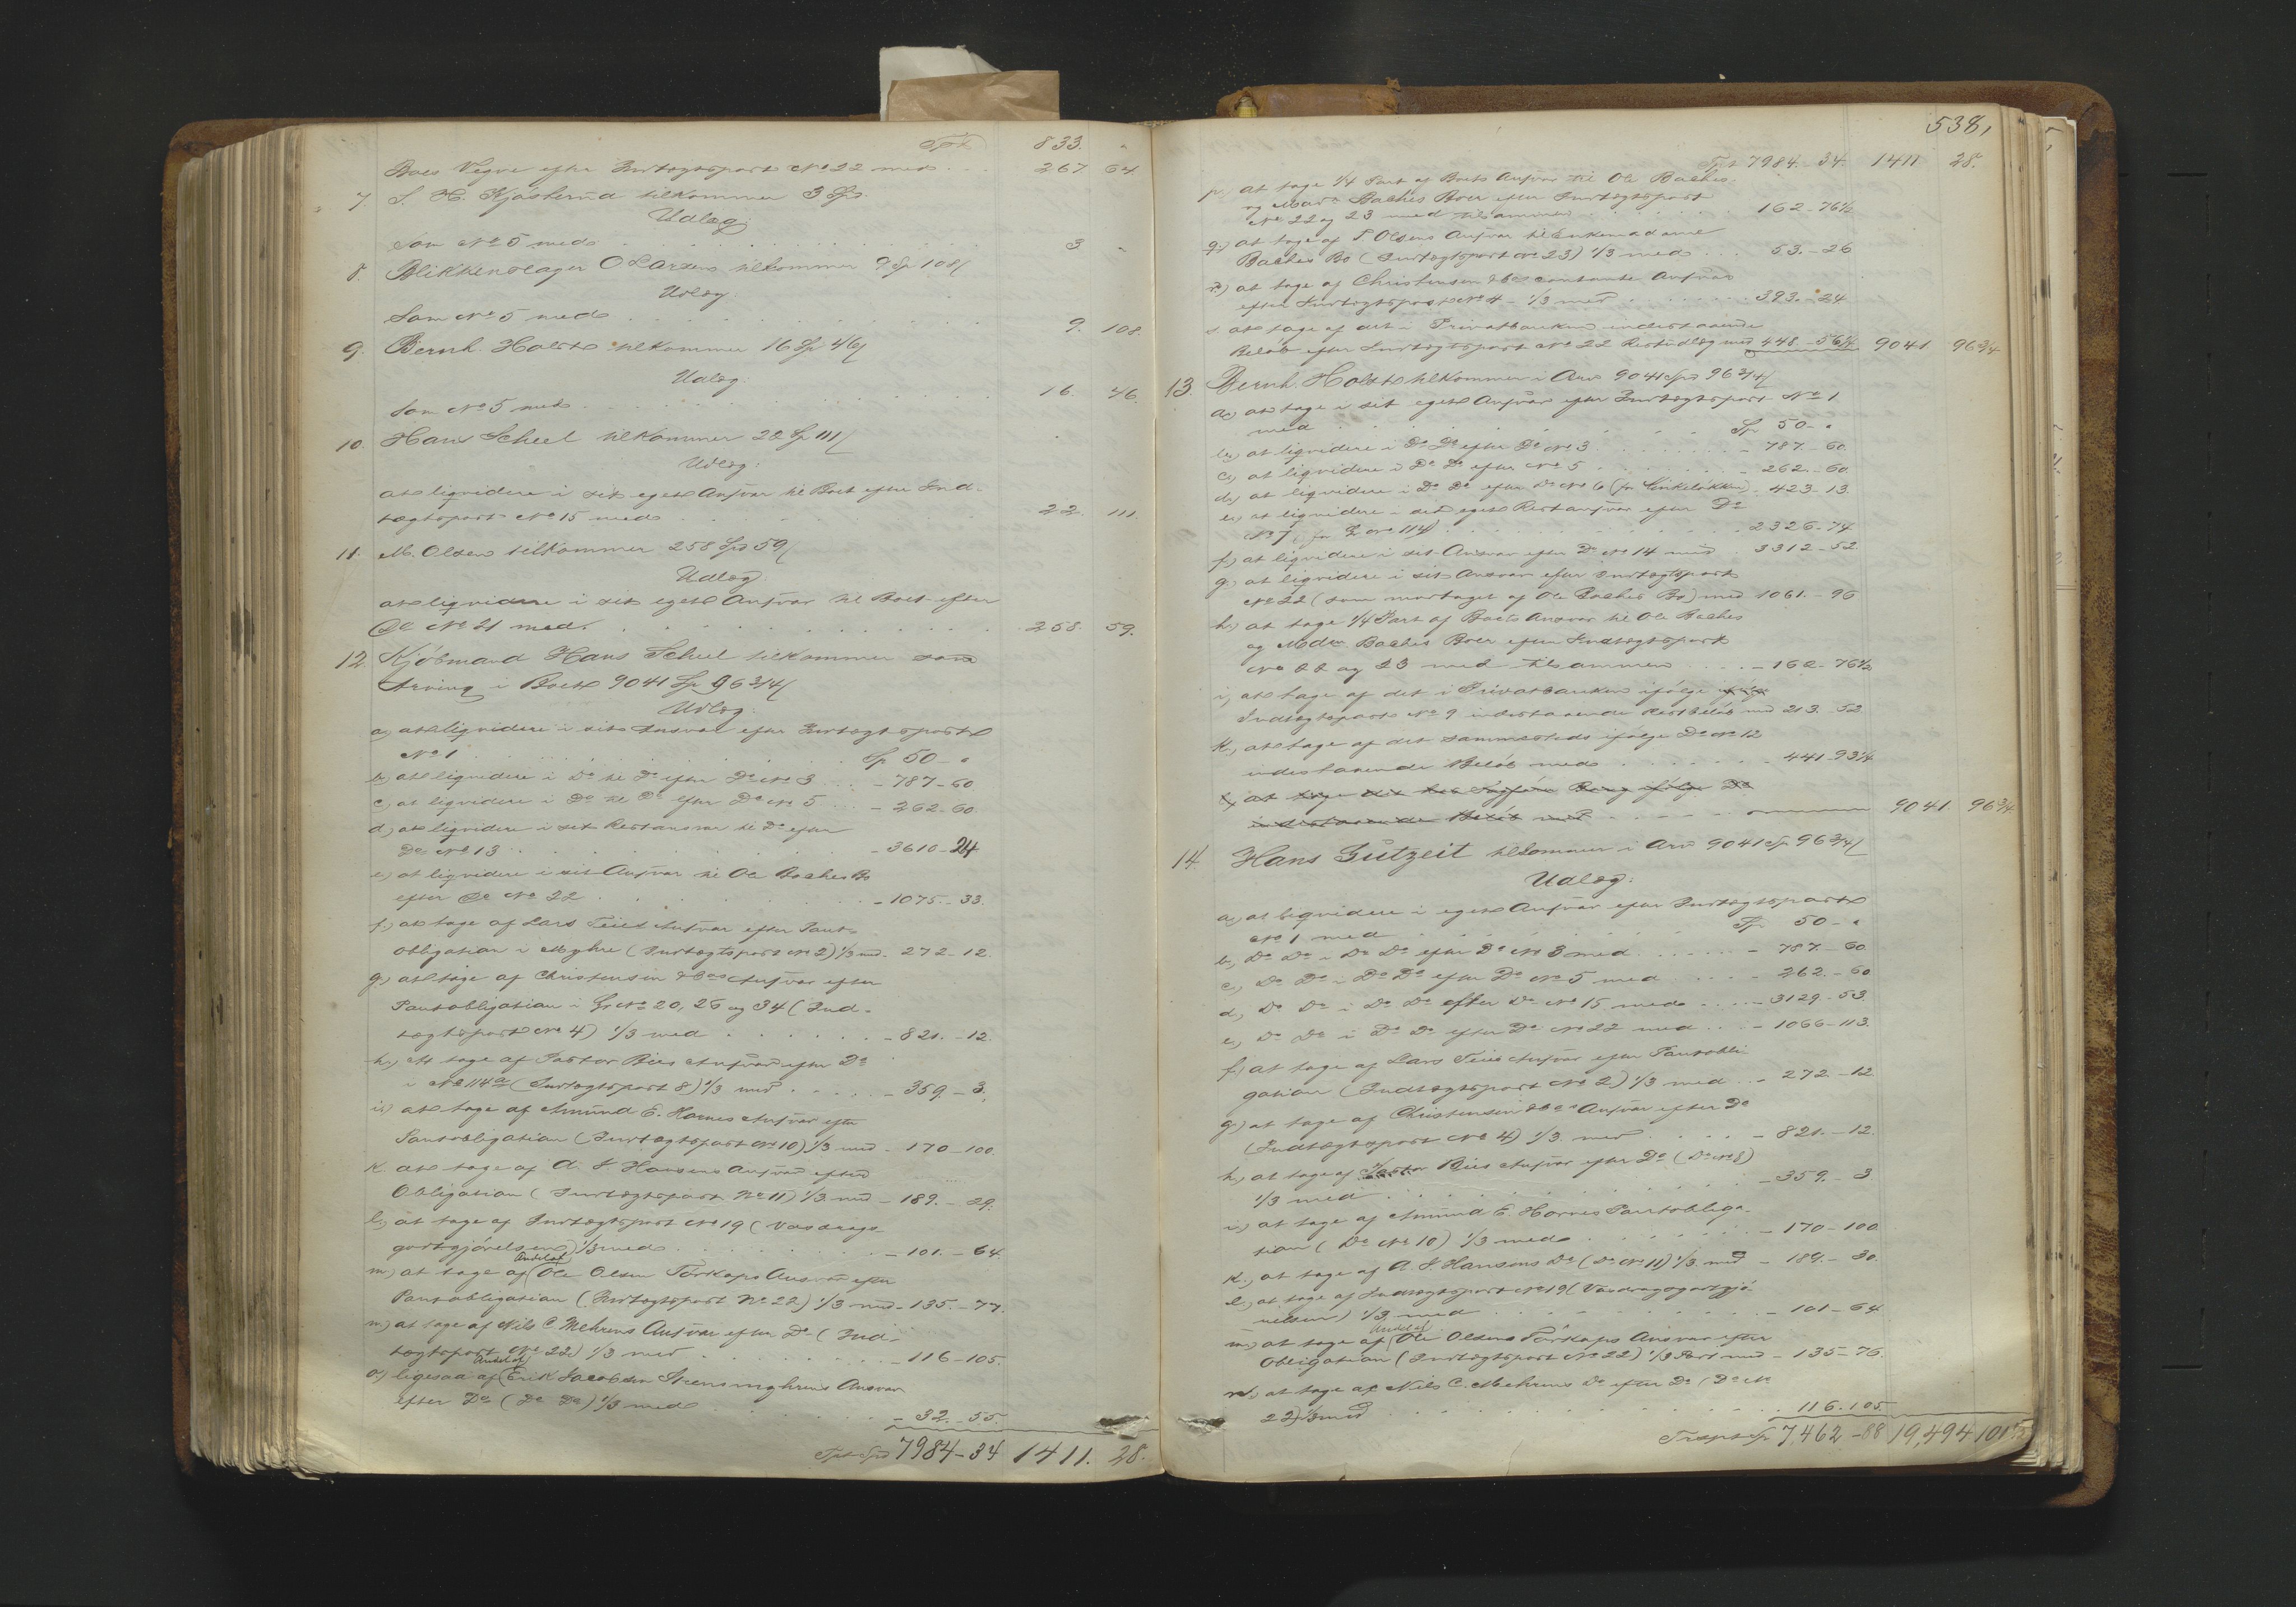 Tpt. 833. "
Boes Vegne efter Indtægtspost No 22 med . . 267. 64.
7. S. H. Kjøsterud tilkommer 3 Spd.
Udlæg:
Som No 5 med . . . 3 "
8. Blikkenslager O Larsen tilkommer 9 Sp 108/
Udlæg:
Som No 5 med . . . 9. 108.
9. Bernh. Holst tilkommer 16 Sp 46/
Udlæg:
Som No 5 med . . . 16. 46.
10. Hans Scheel tilkommer 22 Sp 111/
Udlæg:
at liqvidere i sit eget Ansvar til Boet efter Ind-
tægtspost No 15 med . . . 22. 111.
11. M. Olsen tilkommer 258 Spd 59/
Udlæg
at liqvidere i sit eget Ansvar til Boet efter
Do No 21 med. . . . 258. 59.
12. Kjøbmand Hans Scheel tilkommer som
Arving i Boet 9041 Sp 96 3/4/
Udlæg:
a, at liqvidere i sit Ansvar efter Indtægtspost
No 1 . . . Sp 50 - "
b, at liqvidere i Do til Do efter Do No 3 . . - 787 - 60
c, at liqvidere i Do til Do efter Do No 5 . . - 262 - 60.
d, at liqvidere i sit Restansvar til Do efter
Do No 13 . . . - 3610 - 24
e, at liqvidere i sit Ansvar til Ole Baches Bo
efter Do No 22 . . . - 1075. - 33.
f, at tage af Lars Teies Ansvar efter Pant-
obligation i Myhre (Indtægtspost No 2) 1/3 med - 272 - 12.
g, at tage af Christensen & Co's Ansvar efter
Pantobligation i Gr No 20, 26 og 34 (Ind-
tægtspost No 4) 1/3 med . . . - 821. - 12.
h, At tage af Pastor Bies Ansvar efter Do
i No 114a (Indtægtspost 8) 1/3 med . . . - 359. - 3.
i, at tage af Amund E. Hornes Ansvar efter
Pantobligation (Indtægtspost No 10) 1/3 med - 170 - 100.
k. at tage af A. S. Hansens Ansvar efter
Obligation (Indtægtspost No 11) 1/3 med - 189. - 29.
l, at tage af Indtægtspost No 19 (Vasdrags-
godtgjørelsen) 1/3 med . . . - 101. - 64.
m, at tage af Andel af Ole Olsen Torkops Ansvar efter
Pantobligation (Indtægtspost No 22) 1/3 med - 135. - 77.
n, at tage af Nils C. Mehrens Ansvar efter Do (Ind-
tægtspost No 22) 1/3 med . . . - 116 - 105.
o, ligesaa af Andel af Erik Jacobsen Steensmyhrens Ansvar
efter Do (Do Do) 1/3 med . . . - 32. - 55.
Tpt Spd 7984 - 34 1411. 28.
538,
Tpt 7984. - 34. 1411. 28.
p, at tage 1/4 Part af Boets Ansvar til Ole Baches
og Mad. Baches Boer efter Indtægtspost
No 22 og 23 med tilsammen . . . 162 - 76 1/2
q, at tage af P. Olsens Ansvar til Enkemadame
Baches Bo (Indtægtspost No 23) 1/3 med . . 53. - 26
r, at tage af Christensen & Co's contante Ansvar
efter Indtægtspost No 4 - 1/3 med . . . 393. - 24.
s. at tage af det i Privatbanken indestaaende
Beløb efter Indtægtspost No 22 Restudlæg med 448 - 56 1/4 9041 96 3/4
13. Bernh. Holst tilkommer i Arv 9041 Spd 96 3/4/
a, at tage i sit eget Ansvar efter Indtægtspost No 1
med . . . Sp 50 - "
b, at liqvidere i Do Do efter Do No 3 . . . - 787 - 60.
c, at liqvidere i Do Do efter No 5 . . . - 262. - 60.
d, at liqvidere i Do Do efter Do No 6 (for Vinkeløkken) . 423 - 13.
e, at liqvidere i sit eget Restansvar efter Do
No 7 (for G No 114) . . . 2326 - 74
f, at liqvidere i sit Ansvar efter Do No 14 med . 3312 - 52.
g, at liqvidere i sit Ansvar efter Indtægtspost
No 22 (som modtaget af Ole Baches Bo) med 1061. - 96
h, at tage 1/4 Part af Boets Ansvar til Ole Baches
og Mdm Baches Boer efter Indtægtspost
No 22 og 23 med tilsammen . . . - 162 - 76 1/2
i, at tage af det i Privatbanken ifølge ifølge
Indtægtspost No 9 indestaaende Restbeløb med 213. - 52
k, at tage af det sammesteds ifølge Do No 12
indestaaende Beløb med . . . - 441 - 93 1/4
l, at tage
indestaaende Beløb med . . . 9041. 96 3/4
14. Hans Gutzeit tilkommer i Arv 9041 Sp 96 3/4/
Udlæg:
a, at liqvidere i eget Ansvar efter Indtægtspost
No 1 med . . . Sp 50 - "
b, Do Do i Do Do efter Do No 3 med . . . - 787. - 60
c, Do Do i Do Do efter Do No 5 med . . . - 262. - 60
d, Do Do i Do Do efter Do No 15 med . . . - 3129. - 53.
e, Do Do i Do Do efter Do No 22 med . . . - 1066 - 113.
f, at tage af Lars Teies Ansvar efter Pantobli-
gation (Indtægtspost No 2) 1/3 med . . - 272 - 12
g, at tage af Christensen & Co's Ansvar efter Do
(Indtægtspost No 4) 1/3 med . . . - 821. - 12.
h, at tage af Pastor Bies Ansvar efter Do (Do No 8)
1/3 med . . . - 359. - 3
i, at tage af Amund E. Hornes Pantobliga-
tion (Do No 10) 1/3 med . . . - 170 - 100
k, at tage af A. S. Hansens Do (Do No 11) 1/3 med - 189. - 30.
l, at tage af Indtægtspost No 19 (Vasdragsgodtgjø-
relsen) 1/3 med . . . - 101 - 64
m, at tage af Andel af Ole Olsens Torkops Ansvar efter
Obligation (Indtægtspost No 22) 1/3 Part med - 135 - 76.
n, at tage af Nils C. Mehrens Do efter Do (Do No
22) 1/3 med . . . 116. 105.
Trspt Sp 7,462 - 88 19,494 101 1/2